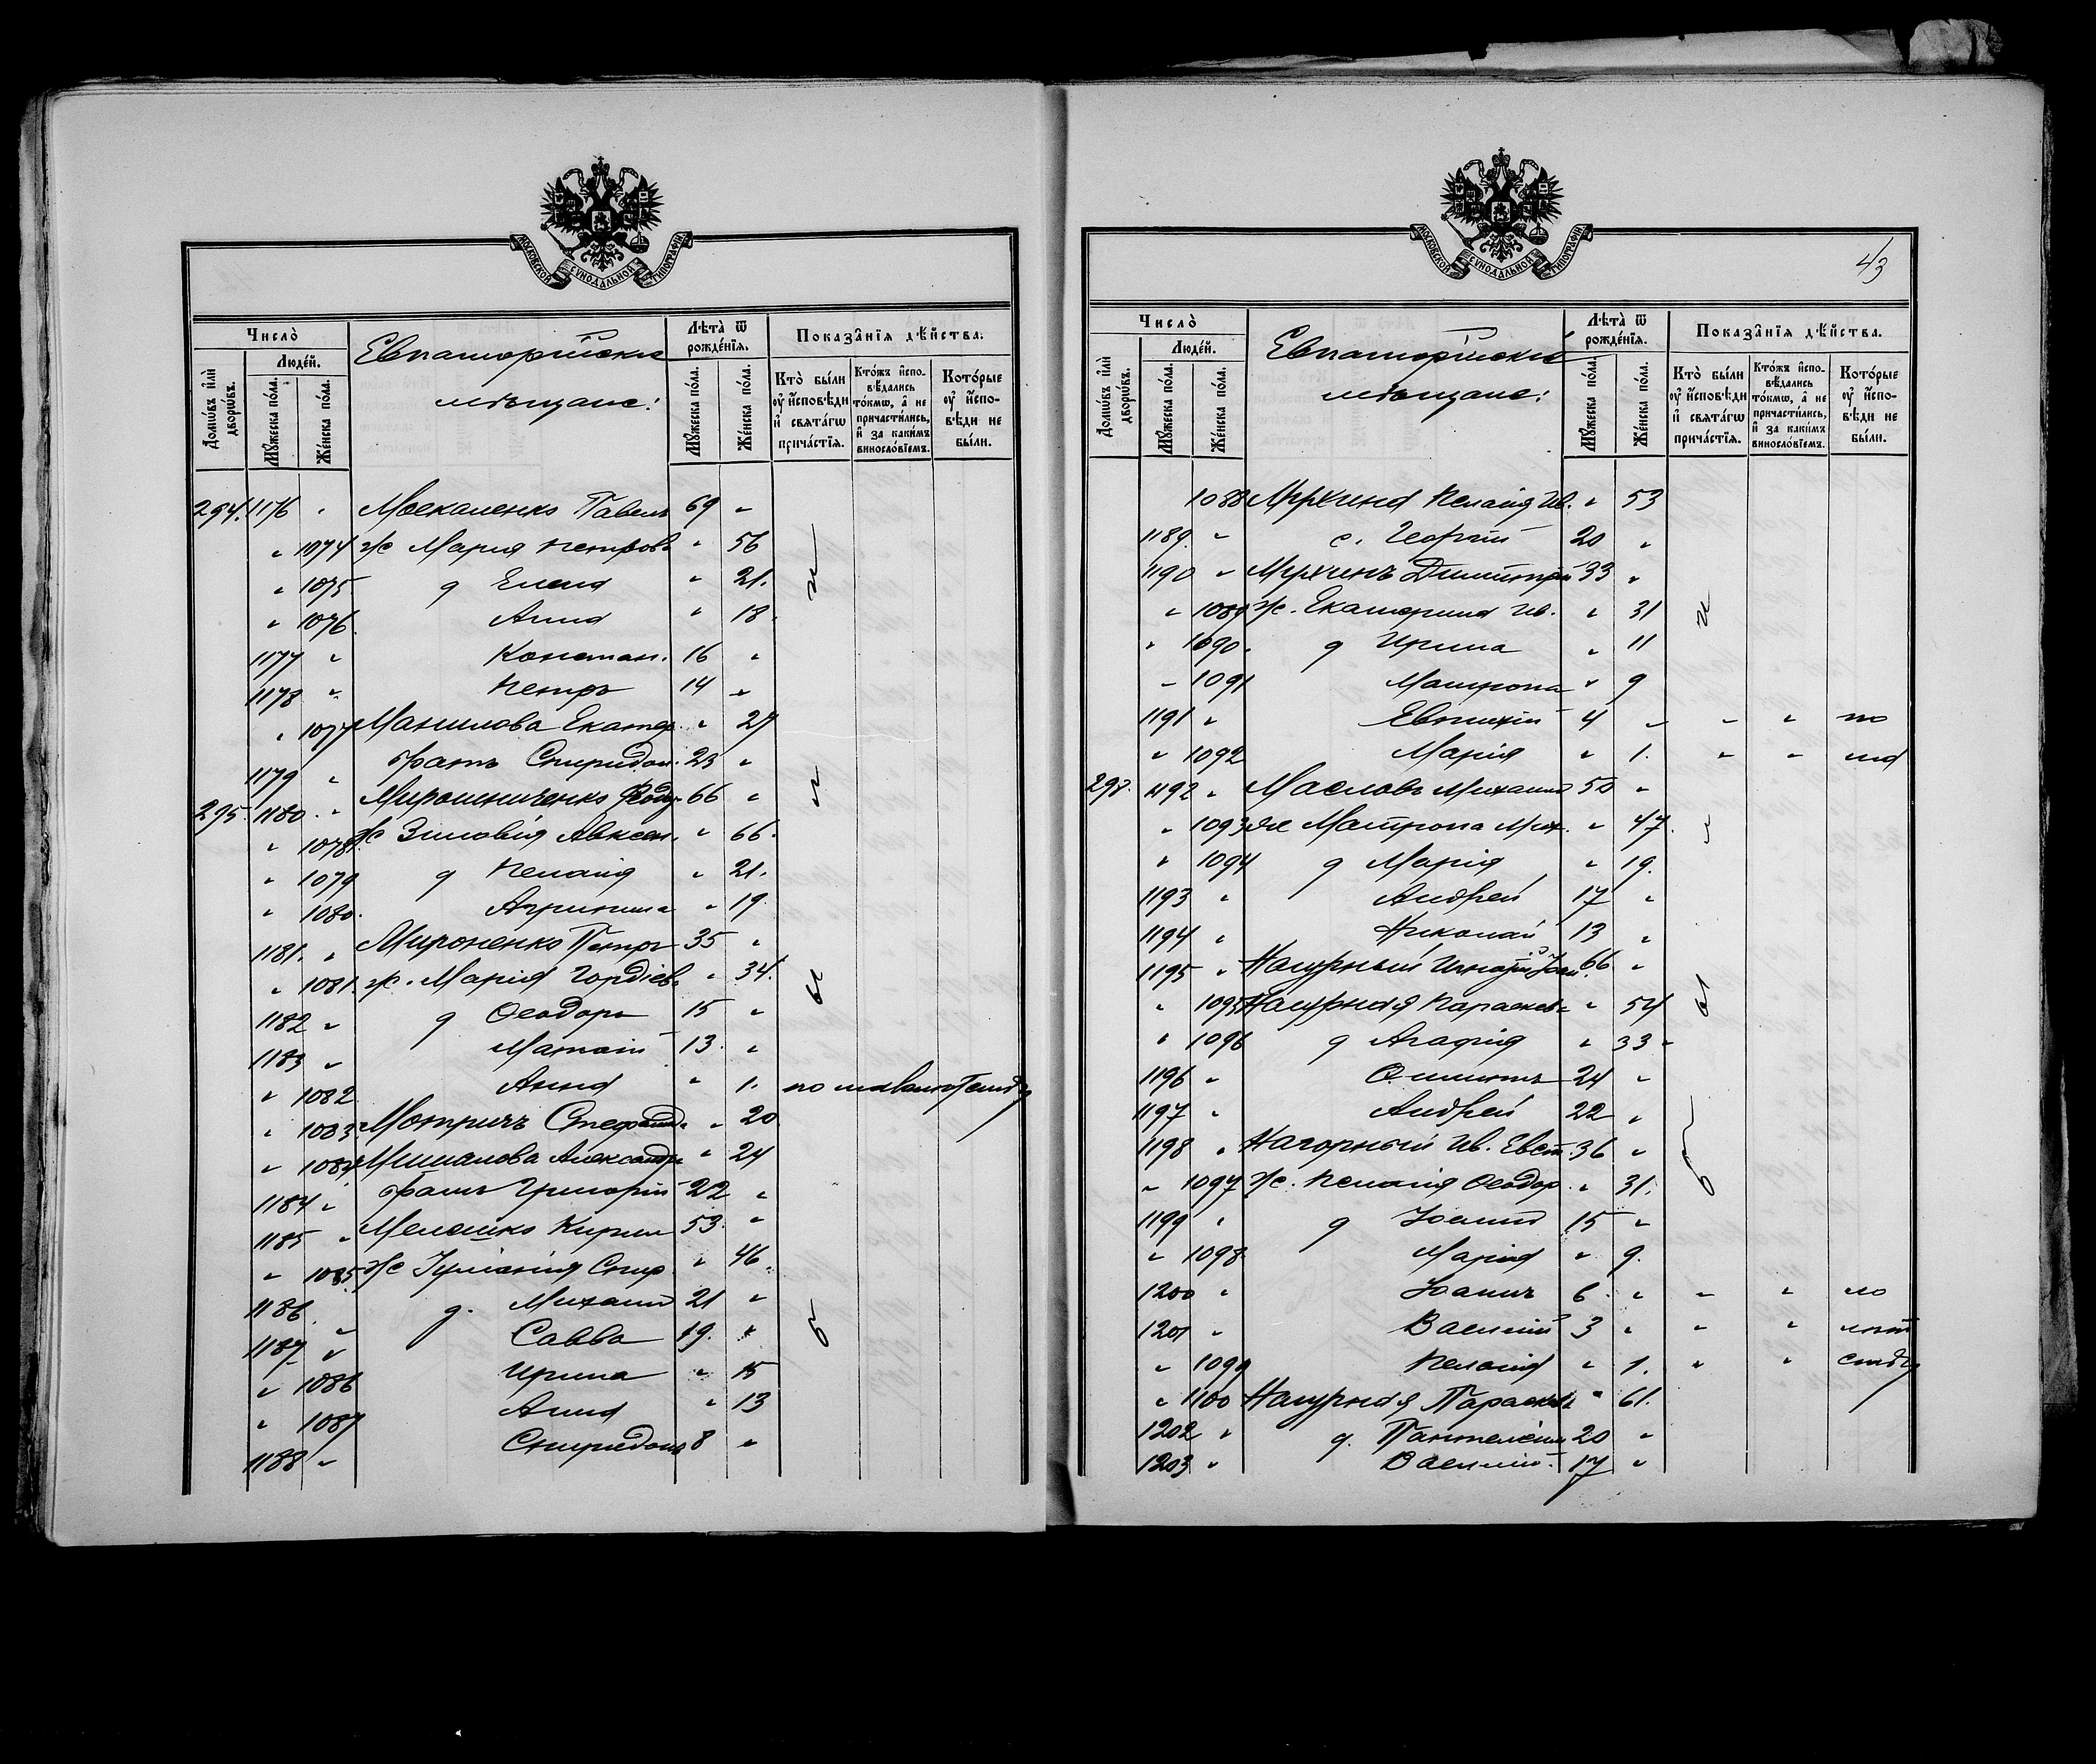 МОСКОВСКОЙ СѴНОДАЛЬНОЙ ТИПОГРАФІИ
Число̀
Люде́й.
Домѡ́въ и҆лѝ дворѡ́въ.
Мꙋ́жеска по́ла.
Же́нска по́ла.
Евпаторійскіе
мѣщане:
Лѣ́та ѿ рожде́нїѧ.
Мꙋ́жеска по́ла.
Же́нска по́ла.
Показа̑нїѧ дѣ́йства.
Кто̀ бы́ли ᲂу҆ и҆́сповѣди и҆ свѧта́гѡ прича́стїѧ.
Кто́жъ и҆споВѣ́дались то́кмѡ, а҆ не причасти́лись, и҆ за каки́мъ виносло́вїемъ.
Кото́рые ᲂу҆ и҆́сповѣди не бы́ли.
294. 1176 " Москаленко Павелъ 69 "
" 1074 ж Мария Петров. " 56
" 1075 д Елена " 21.
" 1076 Анна " 18.
1177 " Констан. 16 "
1178 " Петръ 14 "
" 1077 Манилова Екатер. " 27
1179 " братъ Спиридон. 23 "
295. 1180. " Мирошниченко Ѳеод. 66 "
" 1078 ж Зиновія Авксен. " 66.
" 1079 д Пелагія " 21.
" 1080. Агрипина " 19.
1181. " Мироненко Петръ 35 "
" 1081. ж. Марія Гордіев. " 34.
1182 " д Ѳеодоръ 15 "
1183 " Матѳій 13. "
" 1082 Анна " 1. по малолѣтству
" 1083. Мотричъ Стефанид. " 20.
" 1084 Мишалова Александр. " 24
1184 " братъ Григорій 22 "
1185 " Мелешко Кирил 53. "
" 1085. ж Іуліанія Спир. " 46.
1186. " д. Михаил 21 "
1187 " Савва 19. "
" 1086 Ирина " 15
" 1087 Анна " 13
1188 " Спиридонъ 8 "
МОСКОВСКОЙ СѴНОДАЛЬНОЙ ТИПОГРАФІИ
43
Число̀
Люде́й.
Домѡ́въ и҆лѝ дворѡ́въ.
Мꙋ́жеска по́ла.
Же́нска по́ла.
Евпаторійскіе
мѣщане:
Лѣ́та ѿ рожде́нїѧ.
Мꙋ́жеска по́ла.
Же́нска по́ла.
Показа̑нїѧ дѣ́йства.
Кто̀ бы́ли ᲂу҆ и҆́сповѣди и҆ свѧта́гѡ прича́стїѧ.
Кто́жъ и҆споВѣ́дались то́кмѡ, а҆ не причасти́лись, и҆ за каки́мъ виносло́вїемъ.
Кото́рые ᲂу҆ и҆́сповѣди не бы́ли.
1088 Пелагія Ив. " 53
1189. " с. Георгій 20 "
1190 " Димитрій 33 "
" 1089 ж. Екатерина Ив. " 31
" 1090. д Ирина " 11
" 1091 Матрона " 9
1191 " Евтихій 4 " " " по
" 1092 Марія " 1. " " ма
298. 1192 " Масловъ Михаил 50 "
" 1093 ж Матрона Мих. " 47.
" 1094 д Марія " 19.
1193 " Андрей 17 "
1194 " Николай 13 "
1195 " Нагурный Игнатій Іоан. 66 "
" 1095 Нагурная Параскев. " 54
" 1096 д Агафія " 33
1196 " 24 "
1197 " Андрей 22 "
1198 " Нагорный Ив. Евст. 36 "
" 1097 ж. Пелагія Ѳеодор. " 31.
1199 " д Іоанн 15 "
" 1098. Марія " 9.
1200 " Іоаннъ 6 " " " ло
1201 " Василій 3 " " " лѣт
" 1099 Пелагія " 1. " " ству
" 1100 Нагурная Параскев. " 61.
1202 " д. Пантелеим. 20 "
1203 " Василій. 17 "